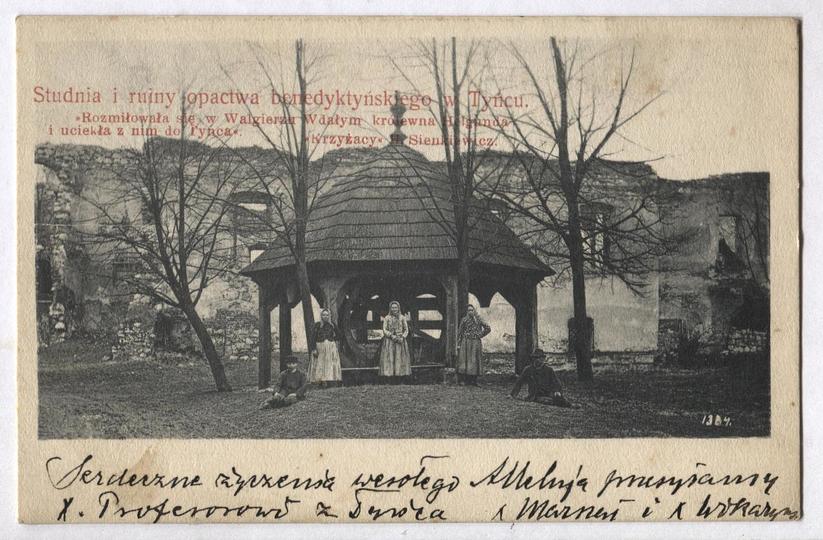 Studnia i ruiny opactwa benedyktyńskiego w Tyńcu.
»Rozmiłowała się w Walgierzu Wdałym królewna Helgunda
i uciekła z nim do Tyńca«.
»Krzyżacy« H. Sienkiewicz.
1384.
Serdeczne życzenia wesołego Alleluja przesyłamy
X. Profesorowi z Tyńca x i x